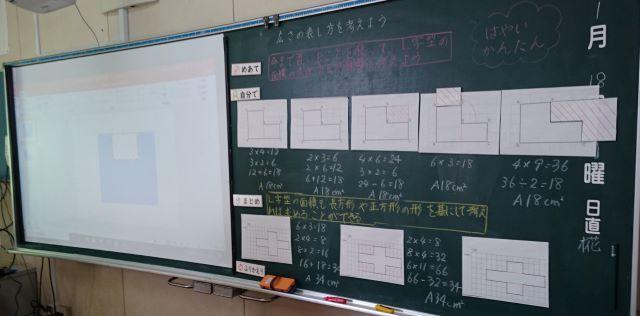 広さの表し方を考えよう
はやい
かんたん
月
曜
日直
めあて
L字型の
面積の
考えよう
自分で
3×4=12
3×2=6
12+6=18
A18cm²
2×3=6
2×6=12
6+12=18
A18cm²
4×6=24
3×2=6
24-6=18
A18cm²
6×3=18
A18cm²
4×9=36
36÷2=18
A18cm²
まとめ
L字型の面積も長方形や正方形の形を基にして考え
ればもとめることができる
ふりかえり
6×3=18
2×4=8
8×2=16
16+18=34
A34cm²
2×4=8
8×4=32
6×11=66
66-32=34
A34cm²